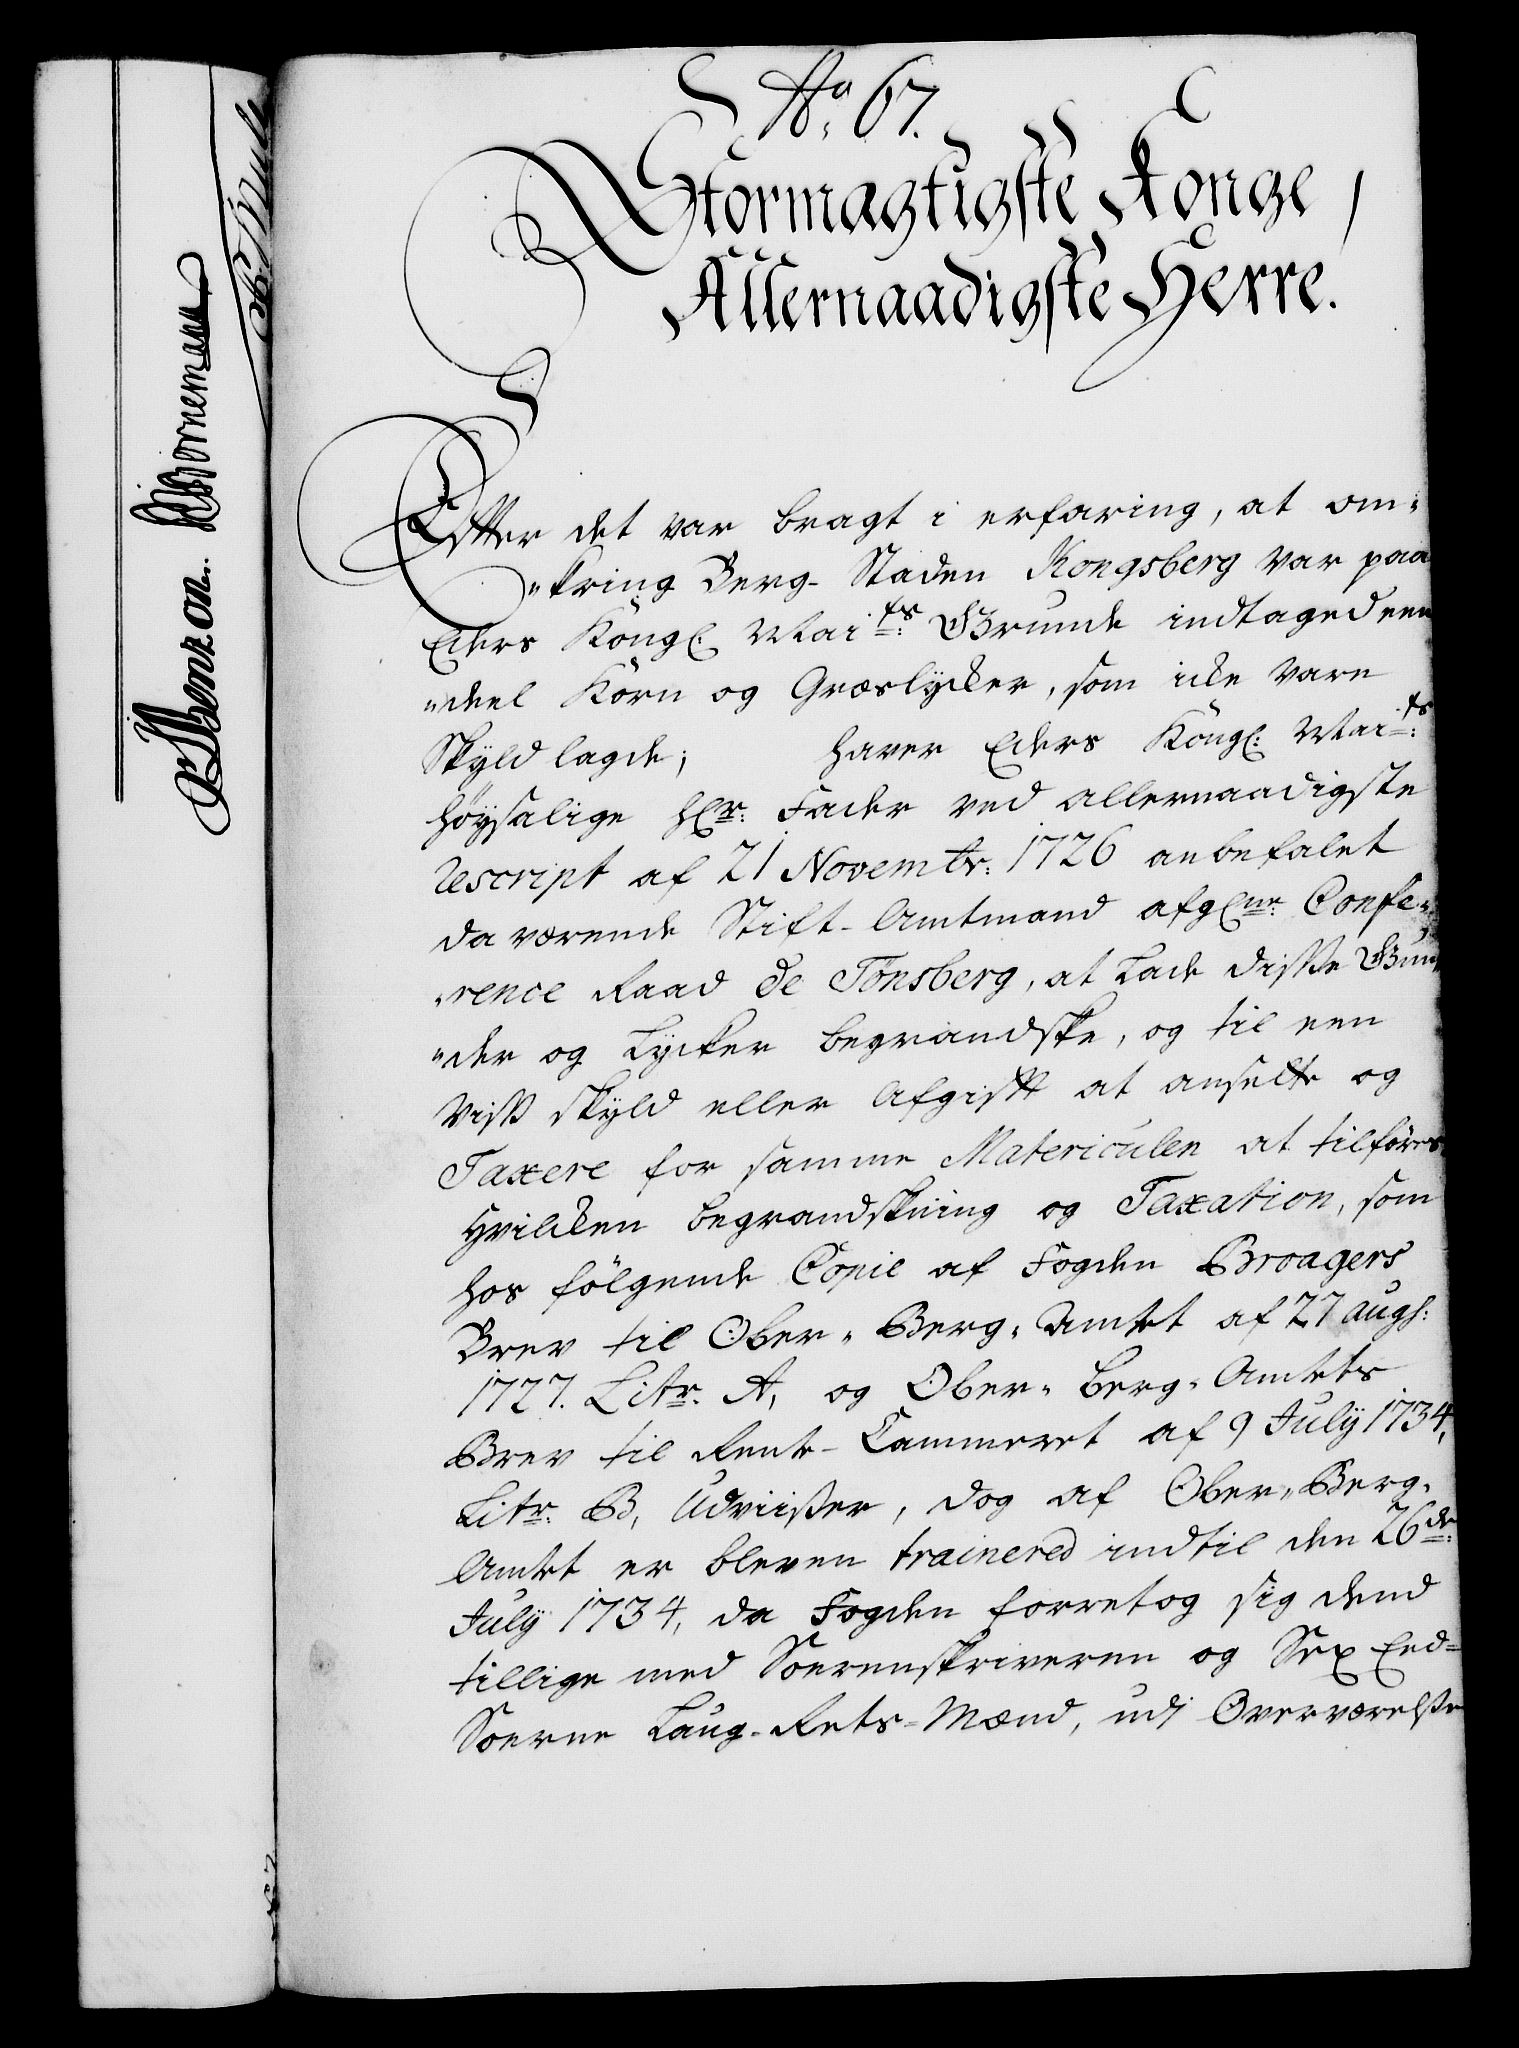 No. 67.
Stormagtigste Konge,
Allernaadigste Herre.
Efter det var bragt i erfaring, at om„
„kring Berg-Staden Kongsberg var paa
Eders Kongl: Maits: Grunde indtaged een
„deel Korn og Græslycker, som icke vare
Skyldlagde; haver Eders Kongl: Maits:
høysalige Hr: Fader ved allernaadigste
Rescript af 21 Novembr: 1726 anbefalet
da værende Stift-Amtmand afgl:ne Confe„
„rence Raad de Tonsberg, at lade disse Grun
„der og Lycker begrandske, og til een
viss skyld eller Afgift at ansette og
Taxere for samme Matericulen at tilføres,
hvilcken begrandskning og Taxation, som
hos følgende Copie af Fogden Broagers
Brev til Ober„Berg„Amtet af 27 Augs:
1727. Litr. A, og Ober„Berg„Amtets
Brev til Rente-Cammeret af 9 July 1734,
Litr. B, udviiser, dog af Ober„Berg„
Amtet er bleven trainered indtil den 26de:
July 1734, da Fogden foretog sig dend
tillige med Soerenskriveren og Sex Eed=
Soerne Laug-Rets-Mænd, udi Overværelse
Benzon.
Bornemann